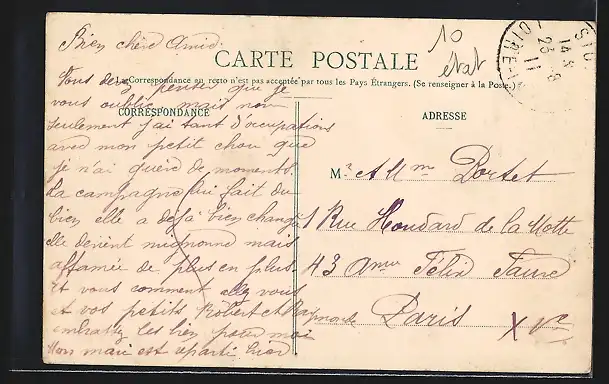 Bien chère Amie.
10
état
CARTE POSTALE
La Correspondance au recto n'est pas acceptée par tous les Pays Étrangers. (Se renseigner à la Poste.)
CORRESPONDANCE
Vous devez penser que je
vous oublie mais non
seulement j'ai tant d'occupations
avec mon petit chou que
je n'ai guère de moments.
La campagne lui fait du
bien elle a déjà bien changé
elle devient mignonne mais
affamée de plus en plus.
Et vous comment allez vous
et vos petits Robert et Raymonde
embrassez les bien pour moi
Mon mari est reparti hier
ADRESSE
Mr et Mme Portet
1 Rue Houdard de la Motte
43 Félix Faure
Paris
XVe